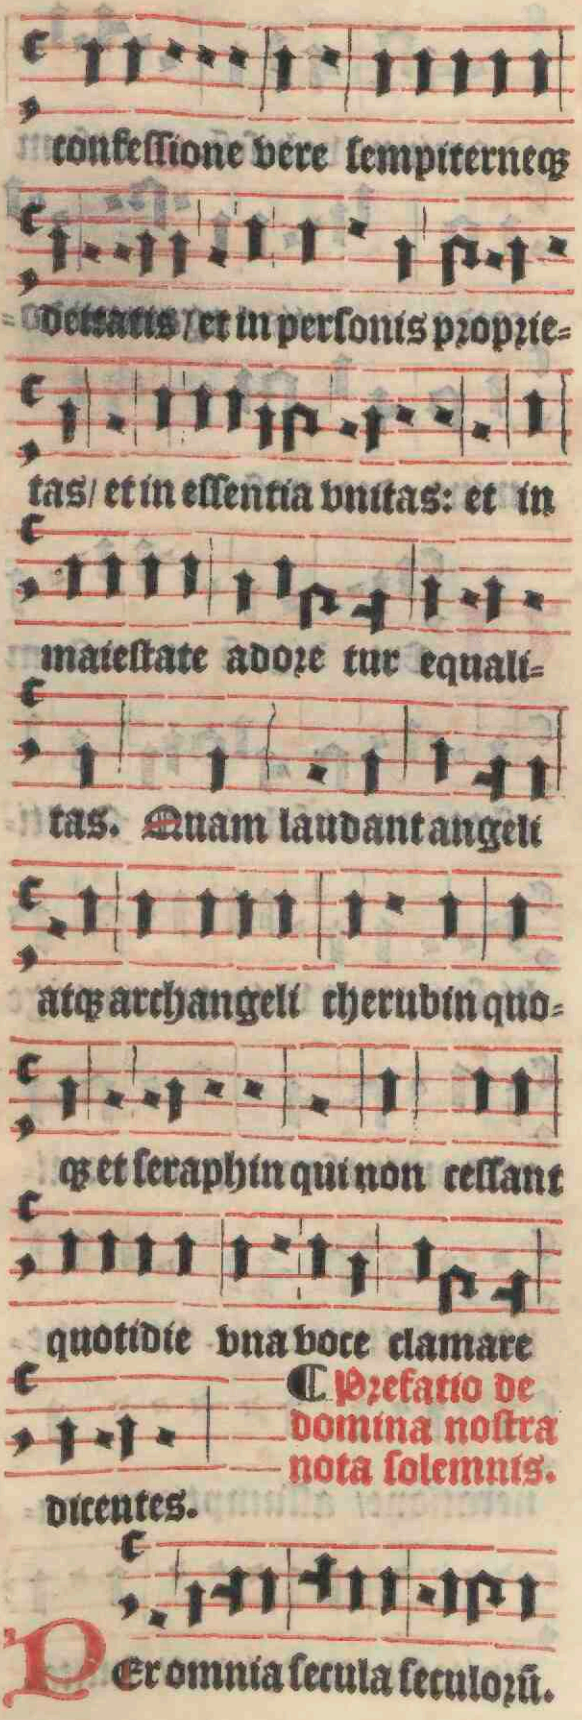 confeſſione vere ſempiterneqꝫ
deitatis / et in perſonis proprie=
tas / et in eſſentia vnitas: et in
maieſtate adore tur equali=
tas. Quam laudant angeli
atqꝫ archangeli cherubin quo=
qꝫ et ſeraphin qui non ceſſant
quotidie vna voce clamare
dicentes.
¶ Prefatio de
domina noſtra
nota ſolemnis.
PEr omnia ſecula ſeculorū.